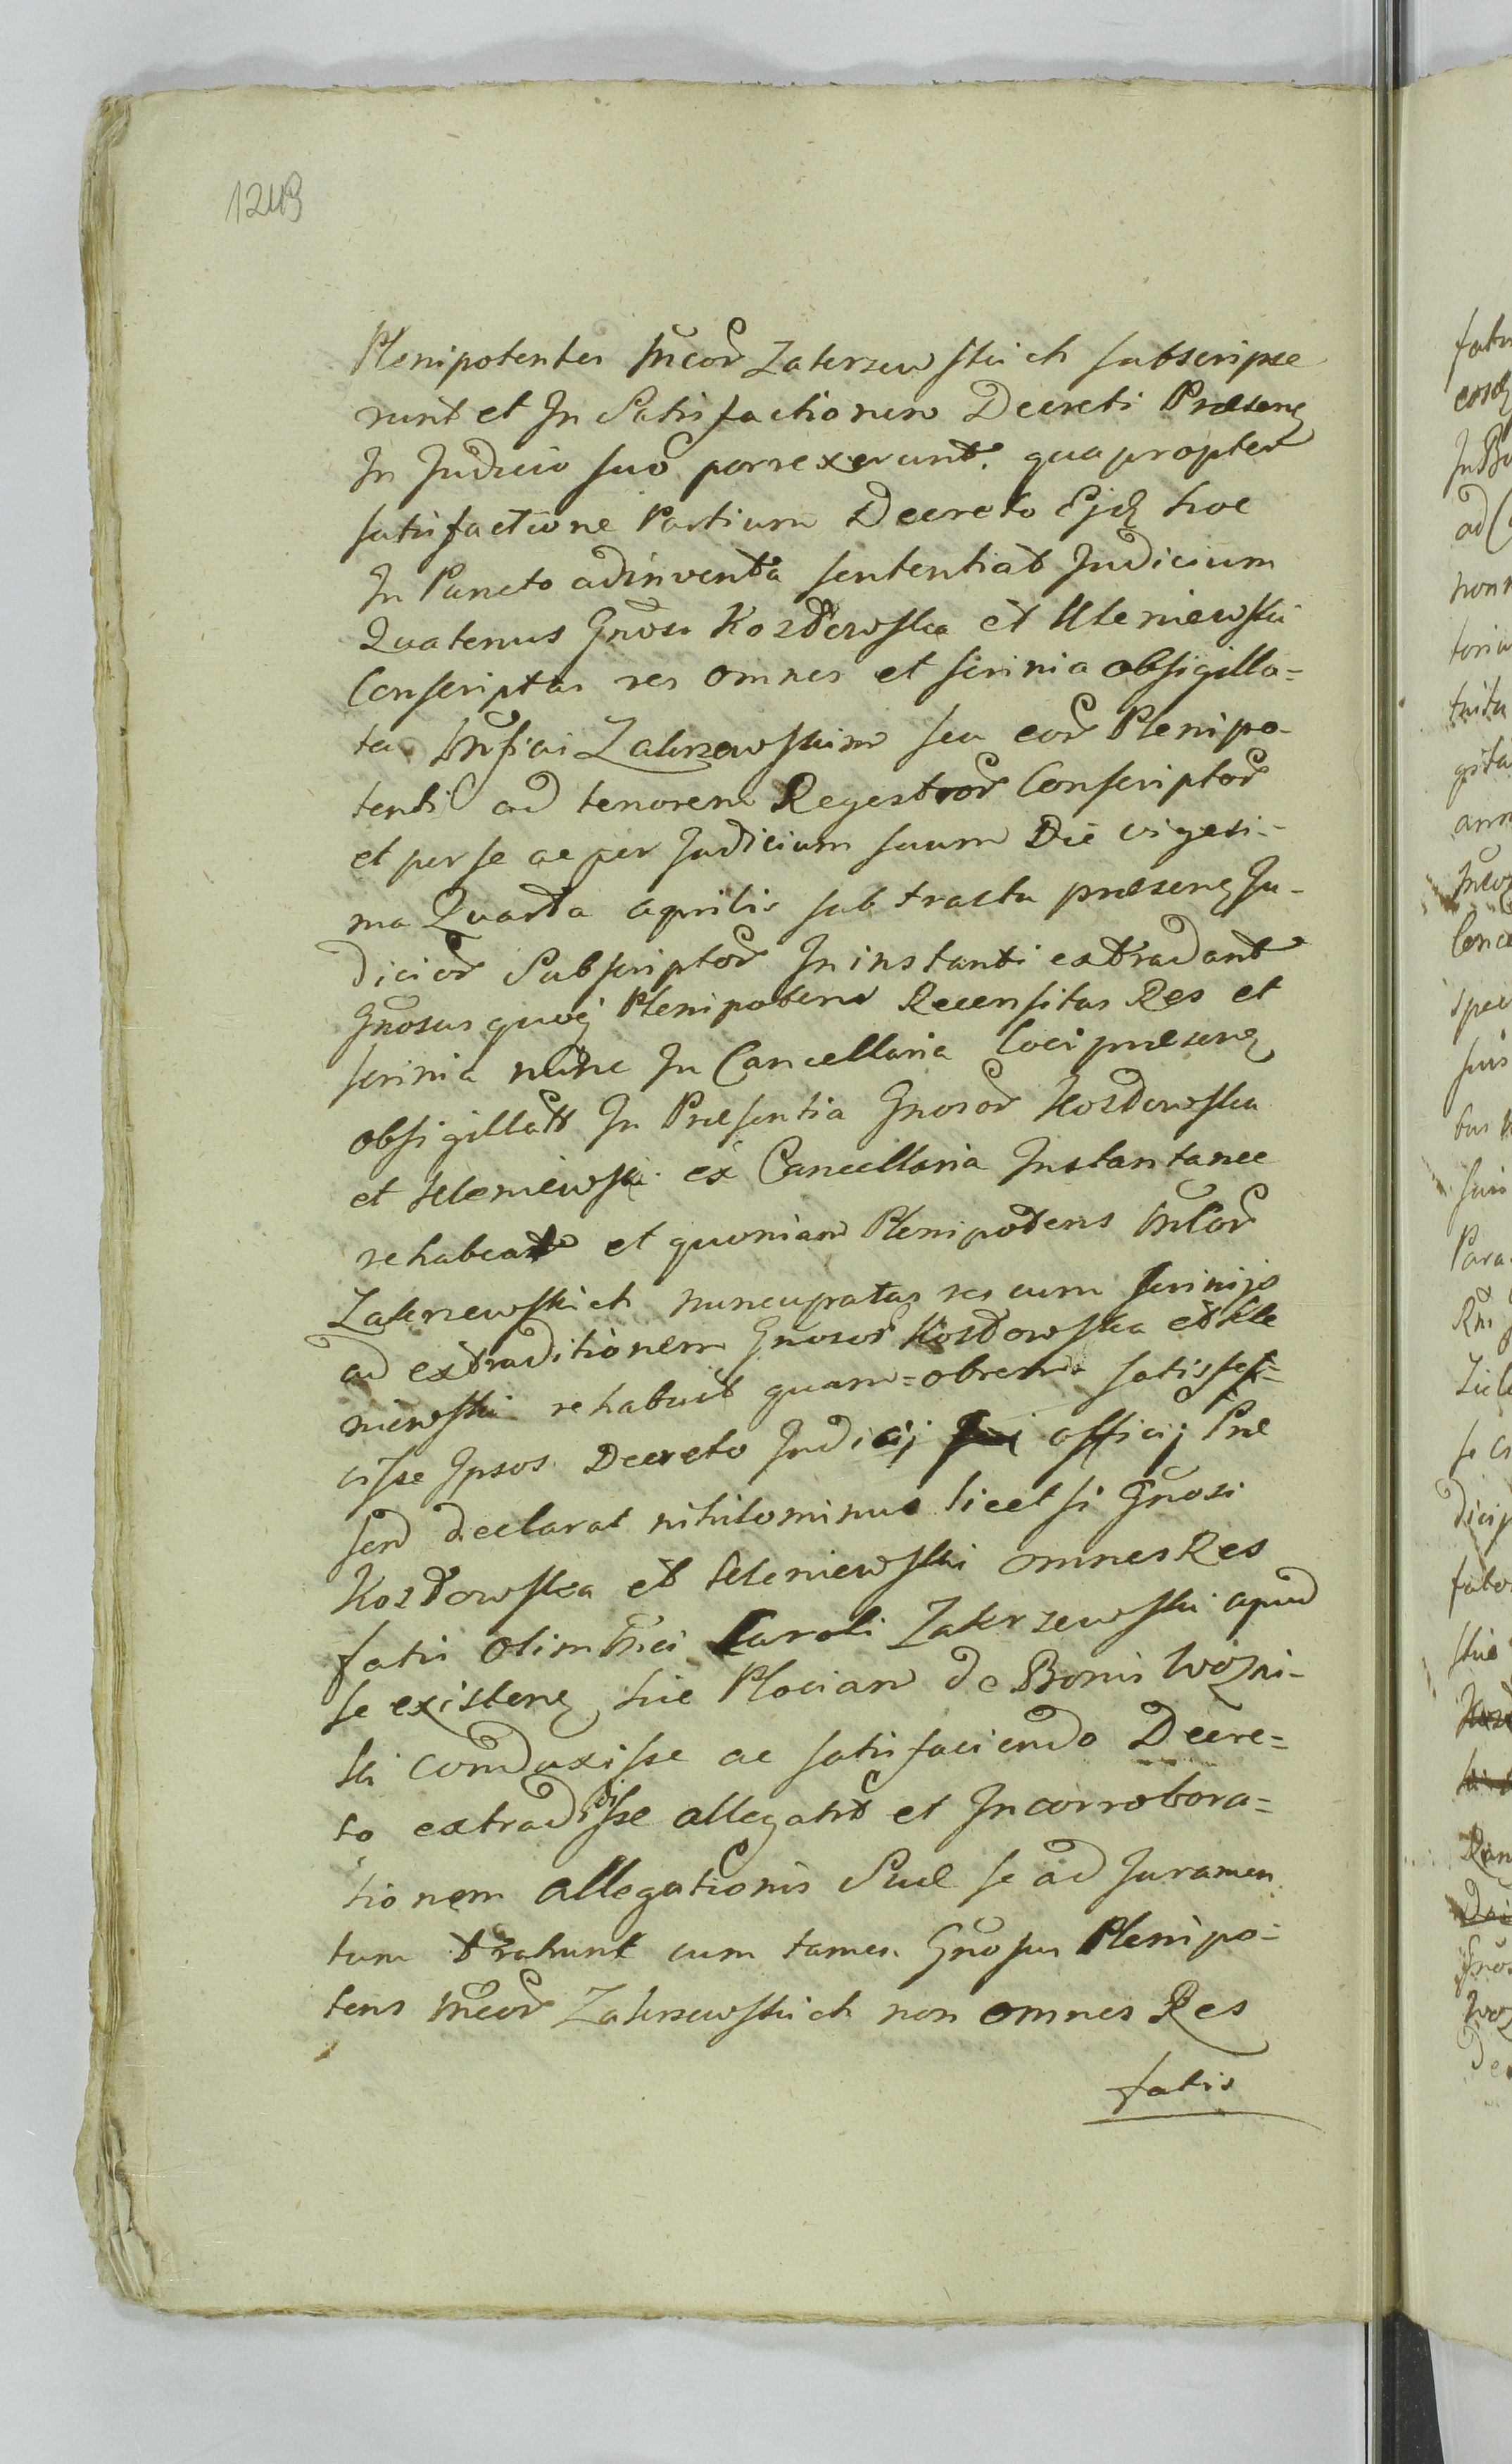 1249
Plenipotentes Mcor̃ Zakrzewskich subscripse
runt et In Satisfactionem Decreti Præsenẽ
In Judicio suo porrexerunt. quapropter
satisfactione Partium Decreto Ejd̃ hoc
In Puncto adinventa sententiat Judicium
Quatenus Gnosi Kozdowska et Uleniewski
Conscriptas res omnes et scrinia obsigilla=
ta Mfici Zakrzewskim seu eor̃ Plenipo-
tenti ad tenorem Regestror̃ Conscriptor̃
et per se ac per Judicium suum Die vigesi-
ma Quarta aprilis sub tractu præsenẽ Ju-
dicior̃ Subscriptor̃ In instanti extradant
Gnosus quoq̃ Plenipotens Recensitas Res et
scrinia nunc In Cancellaria Loci præsenẽ
obsigillatt In Præsentia Gnosor̃ Kozdowska
et Uleniewski ex Cancellaria Instantanee
rehabeat et quoniam Plenipotens Mcor̃
Zakrzewskich nuncupatas res cum scrinijs
ad extraditionem Gnosor̃ Kozdowska et Ule
niewski rehabuit quam=obrem satisfe=
cisse Ipsos Decreto Judicij officij Præ
sen̄ declarat nihilominus licet si Gnosi
Kozdowska et Uleniewski omnes Res
fatis olim Mci Caroli Zakrzewski apud
se existenẽ hic Plociam de Bonis Wozni-
ki conduxisse ac satisfaciendo Decre=
to extradidisse allegant et In corrobora=
tionem allegationis Suæ se ad Juramen
tum trahunt cum tamen Gnosus Plenipo-
tens Mcor̃ Zakrzewskich non omnes Res
fatis